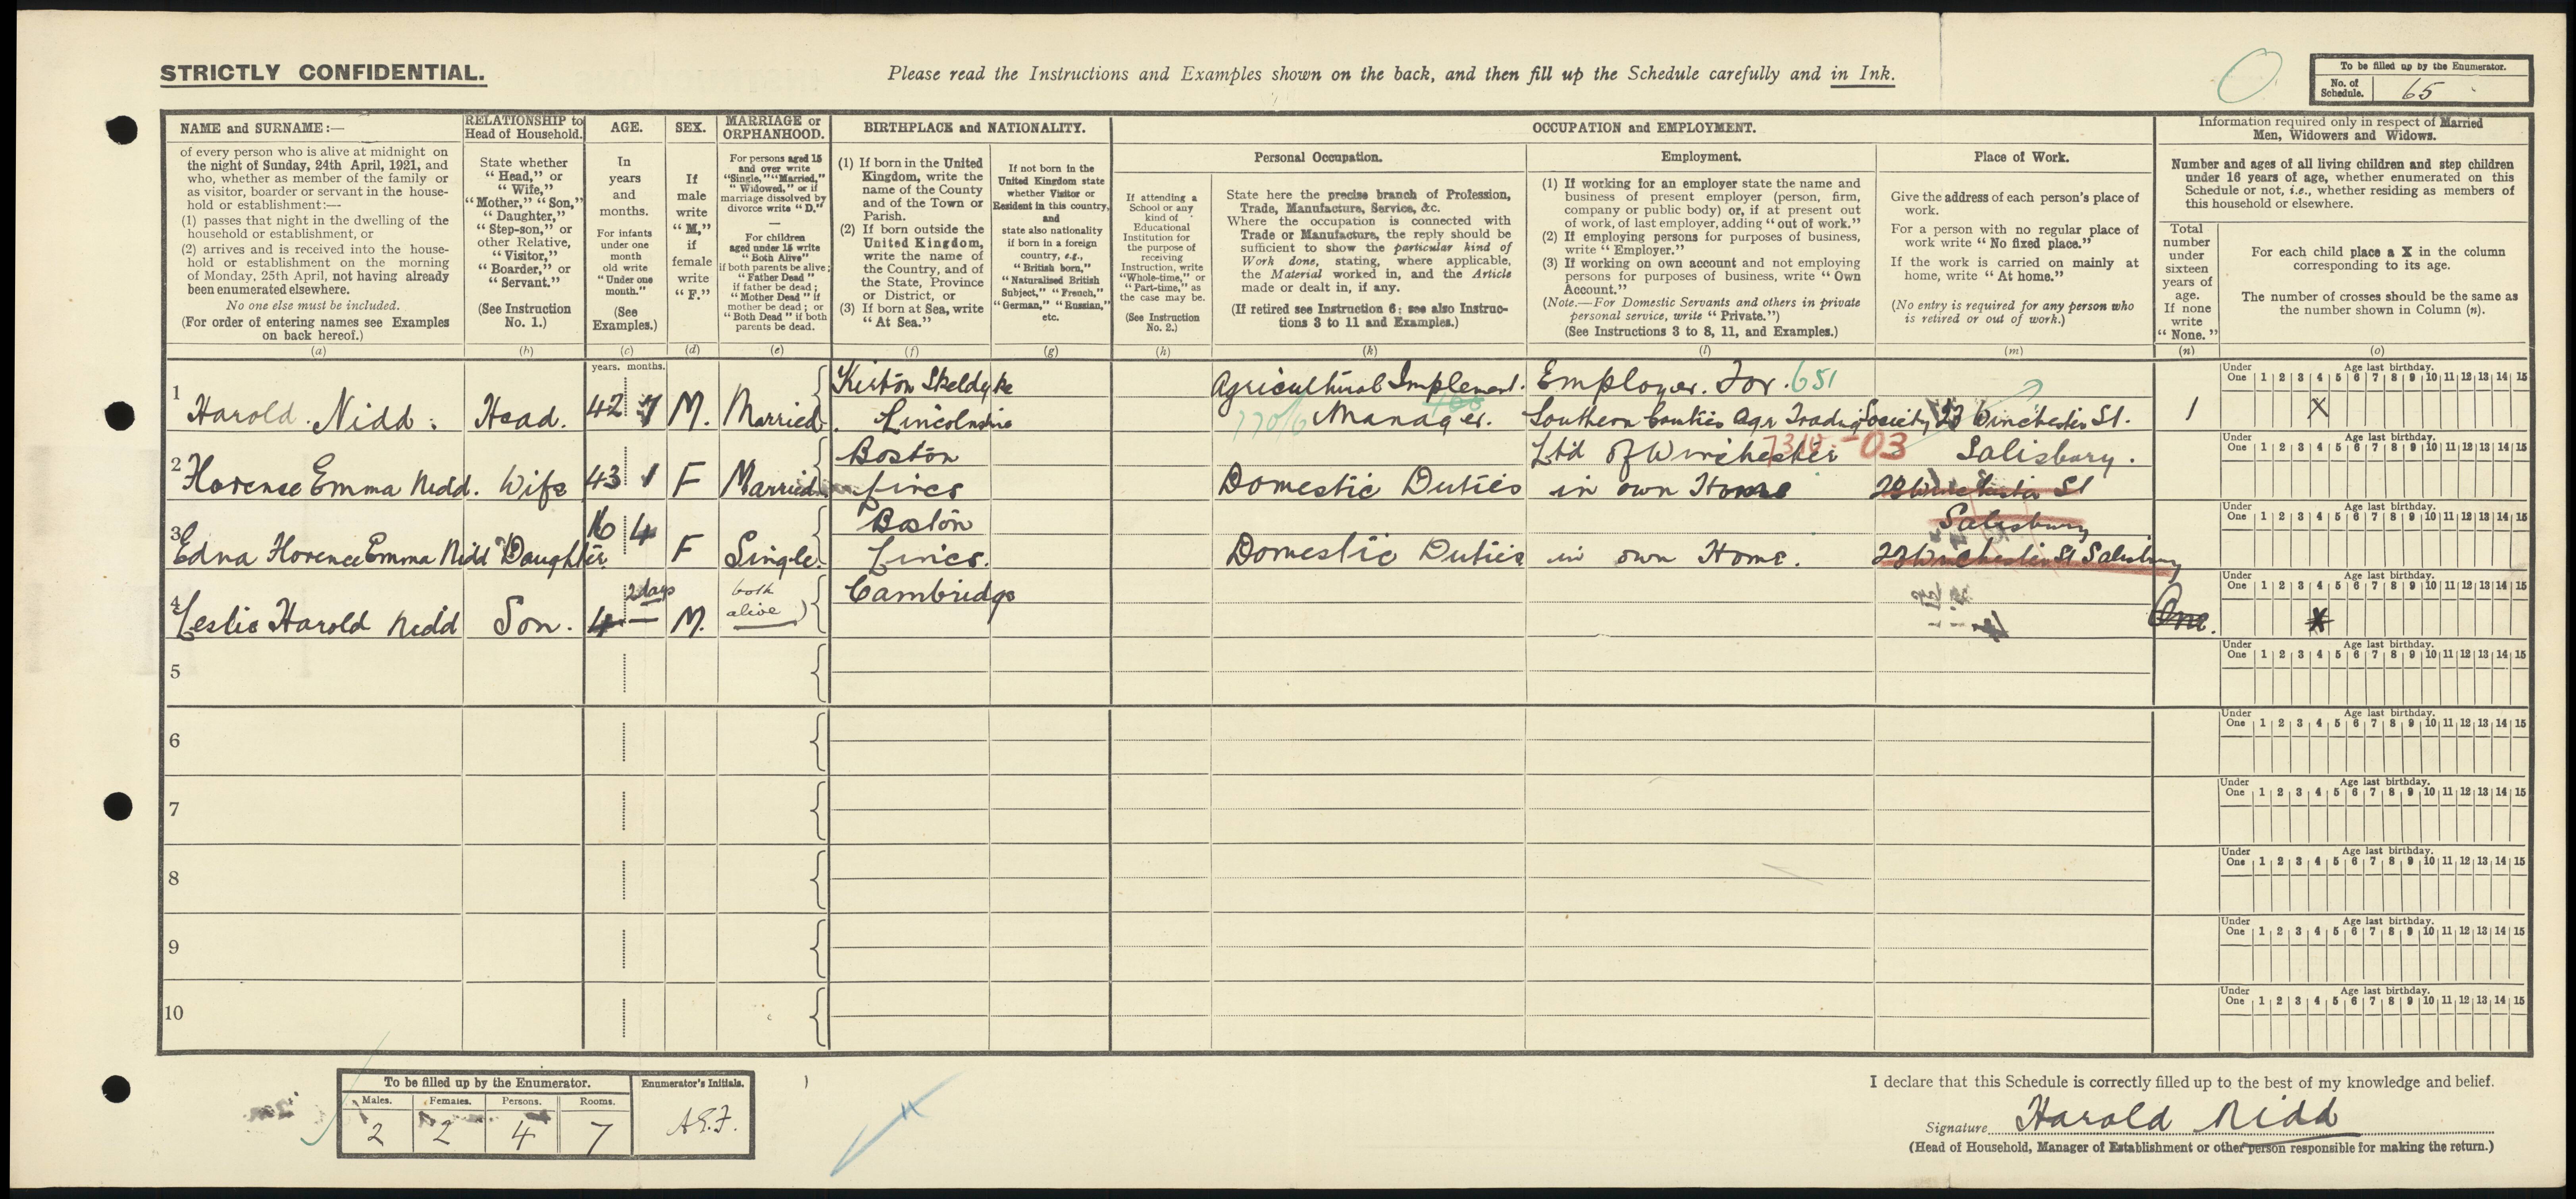 STRICTLY CONFIDENTIAL.
Please read the Instructions and Examples shown on the back, and then fill up the Schedule carefully and in Ink.
To be filled up by the Enumerator.
No. of Schedule. 65
NAME and SURNAME:—
of every person who is alive at midnight on
the night of Sunday, 24th April, 1921, and
who, whether as member of the family or
as visitor, boarder or servant in the house-
hold or establishment:—
(1) passes that night in the dwelling of the
household or establishment, or
(2) arrives and is received into the house-
hold or establishment on the morning
of Monday, 25th April, not having already
been enumerated elsewhere.
No one else must be included.
(For order of entering names see Examples
on back hereof.)
(a)
RELATIONSHIP to
Head of Household.
State whether
"Head," or
"Wife,"
"Mother," "Son,"
"Daughter,"
"Step-son," or
other Relative,
"Visitor,"
"Boarder," or
"Servant."
(See Instruction
No. 1.)
(b)
AGE.
In
years
and
months.
For infants
under one
month
old write
"Under one
month."
(See
Examples.)
(c)
SEX.
If
male
write
"M,"
if
female
write
"F."
(d)
MARRIAGE or
ORPHANHOOD.
For persons aged 15
and over write
"Single," "Married,"
"Widowed," or if
marriage dissolved by
divorce write "D."
—
For children
aged under 15 write
"Both Alive"
if both parents be alive;
"Father Dead"
if father be dead;
"Mother Dead" if
mother be dead; or
"Both Dead" if both
parents be dead.
(e)
BIRTHPLACE and NATIONALITY.
(1) If born in the United
Kingdom, write the
name of the County
and of the Town or
Parish.
(2) If born outside the
United Kingdom,
write the name of
the Country, and of
the State, Province
or District, or
(3) If born at Sea, write
"At Sea."
(f)
If not born in the
United Kingdom state
whether Visitor or
Resident in this country,
and
state also nationality
if born in a foreign
country, e.g.,
"British born,"
"Naturalised British
Subject," "French,"
"German," "Russian,"
etc.
(g)
OCCUPATION and EMPLOYMENT.
If attending a
School or any
kind of
Educational
Institution for
the purpose of
receiving
Instruction, write
"Whole-time," or
"Part-time," as
the case may be.
(See Instruction
No. 2.)
(h)
Personal Occupation.
State here the precise branch of Profession,
Trade, Manufacture, Service, &c.
Where the occupation is connected with
Trade or Manufacture, the reply should be
sufficient to show the particular kind of
Work done, stating, where applicable,
the Material worked in, and the Article
made or dealt in, if any.
(If retired see Instruction 6; see also Instruc-
tions 3 to 11 and Examples.)
(k)
Employment.
(1) If working for an employer state the name and
business of present employer (person, firm,
company or public body) or, if at present out
of work, of last employer, adding "out of work."
(2) If employing persons for purposes of business,
write "Employer."
(3) If working on own account and not employing
persons for purposes of business, write "Own
Account."
(Note.—For Domestic Servants and others in private
personal service, write "Private.")
(See Instructions 3 to 8, 11, and Examples.)
(l)
Place of Work.
Give the address of each person's place of
work.
For a person with no regular place of
work write "No fixed place."
If the work is carried on mainly at
home, write "At home."
(No entry is required for any person who
is retired or out of work.)
(m)
Information required only in respect of Married
Men, Widowers and Widows.
Number and ages of all living children and step children
under 16 years of age, whether enumerated on this
Schedule or not, i.e., whether residing as members of
this household or elsewhere.
Total
number
under
sixteen
years of
age.
If none
write
"None."
(n)
For each child place a X in the column
corresponding to its age.
The number of crosses should be the same as
the number shown in Column (n).
(o)
years. months.
Under One Age last birthday. 1 2 3 4 5 6 7 8 9 10 11 12 13 14 15
1 Harold Nidd. Head. 42 7 M. Married. Kirton Skeldyke Lincolnshire
Agricultural Implement. Manager.
770/6
Employer. For. 651
Southern Counties Agr Trading Society
Ltd of Winchester -03
23 Winchester St.
Salisbury.
1 X
Under One Age last birthday. 1 2 3 4 5 6 7 8 9 10 11 12 13 14 15
2 Florence Emma Nidd. Wife 43 1 F Married Boston Lincs
Domestic Duties in own Home
23 Winchester St
Salisbury
Under One Age last birthday. 1 2 3 4 5 6 7 8 9 10 11 12 13 14 15
3 Edna Florence Emma Nidd Daughter 16 4 F Single. Boston Lincs.
Domestic Duties in own Home.
23 Winchester St Salisbury
Under One Age last birthday. 1 2 3 4 5 6 7 8 9 10 11 12 13 14 15
4 Leslie Harold Nidd Son. 4 — 2 days M. both alive Cambridge
One. X
Under One Age last birthday. 1 2 3 4 5 6 7 8 9 10 11 12 13 14 15
5
Under One Age last birthday. 1 2 3 4 5 6 7 8 9 10 11 12 13 14 15
6
Under One Age last birthday. 1 2 3 4 5 6 7 8 9 10 11 12 13 14 15
7
Under One Age last birthday. 1 2 3 4 5 6 7 8 9 10 11 12 13 14 15
8
Under One Age last birthday. 1 2 3 4 5 6 7 8 9 10 11 12 13 14 15
9
Under One Age last birthday. 1 2 3 4 5 6 7 8 9 10 11 12 13 14 15
10
Under One Age last birthday. 1 2 3 4 5 6 7 8 9 10 11 12 13 14 15
To be filled up by the Enumerator.
Males. Females. Persons. Rooms.
2 2 4 7
Enumerator's Initials.
A.E.F.
I declare that this Schedule is correctly filled up to the best of my knowledge and belief.
Signature Harold Nidd
(Head of Household, Manager of Establishment or other person responsible for making the return.)